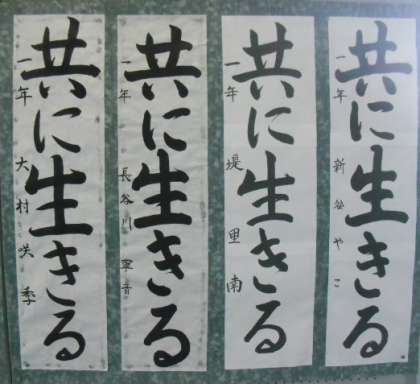 共に生きる
一年 新谷やこ
共に生きる
一年 堤里南
共に生きる
一年 長谷川寧音
共に生きる
一年 大村咲季